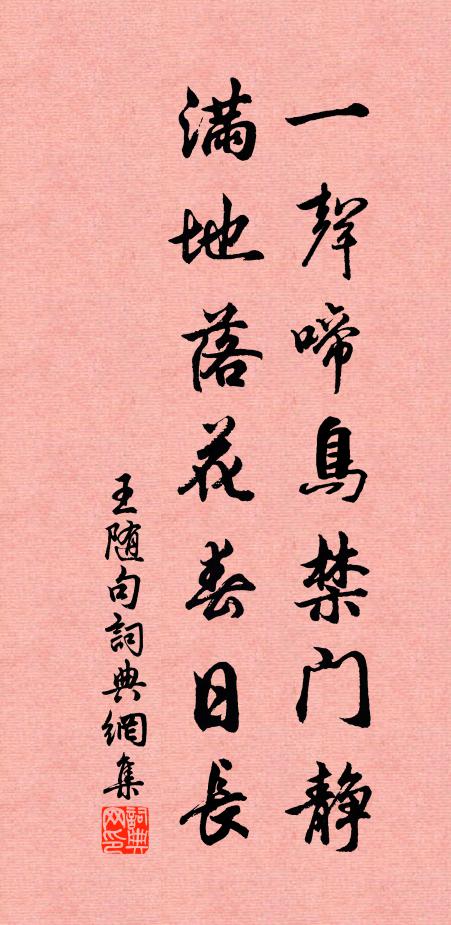 一聲啼鳥禁门静
满地落花春日長
王随句詞典網集
詞典网印